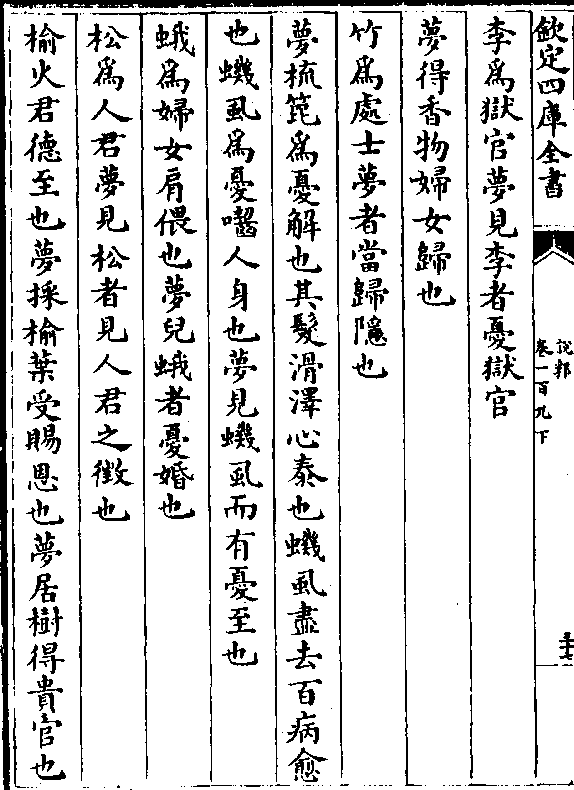 欽定四庫全書
說郛
卷一百九下
三十七
李爲獄官夢見李者憂獄官
夢得香物婦女歸也
竹爲處士夢者當歸隱也
夢梳篦爲憂解也其髮滑澤心泰也蟣虱盡去百病愈
也蟣虱爲憂囓人身也夢見蟣虱而有憂至也
蛾爲婦女肩偎也夢兒蛾者憂婚也
松爲人君夢見松者見人君之徵也
榆火君德至也夢採榆葉受賜恩也夢居樹得貴官也